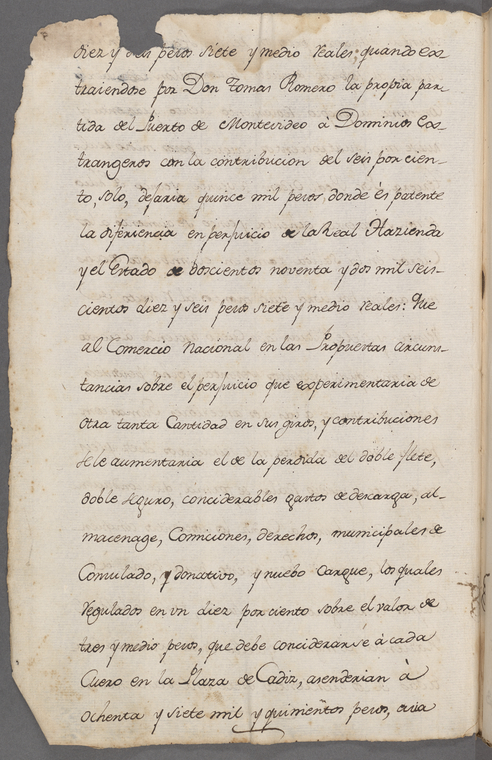 diez y seis pesos siete y medio reales; quando ex-
traiendose por Don Tomas Romero la propia par-
tida del Puerto de Montevideo à Dominios Es-
trangeros con la contribucion del seis por cien-
to, solo, dejaria quince mil pesos, donde és patente
la diferiencia en perjuicio de la Real Hazienda
y el Estado de doscientos noventa y dos mil seis-
cientos diez y seis pesos siete y medio reales: Que
al Comercio Nacional en las Propuestas circuns-
tancias sobre el perjuicio que experimentaria de
otra tanta Cantidad en sus giros, y contribuciones
se le aumentaria el de la perdida del doble flete,
doble seguro, conciderables gastos de descarga, al-
macenage, Comiciones, derechos, municipales de
Consulado, y donativos, y nuebo Cargue, los quales
regulados en vn diez por ciento sobre el valor de
tres y medio pesos, que debe conciderarse à cada
Cuero en la Plaza de Cadiz, asenderian à
ochenta y siete mil y quinientos pesos, cuia